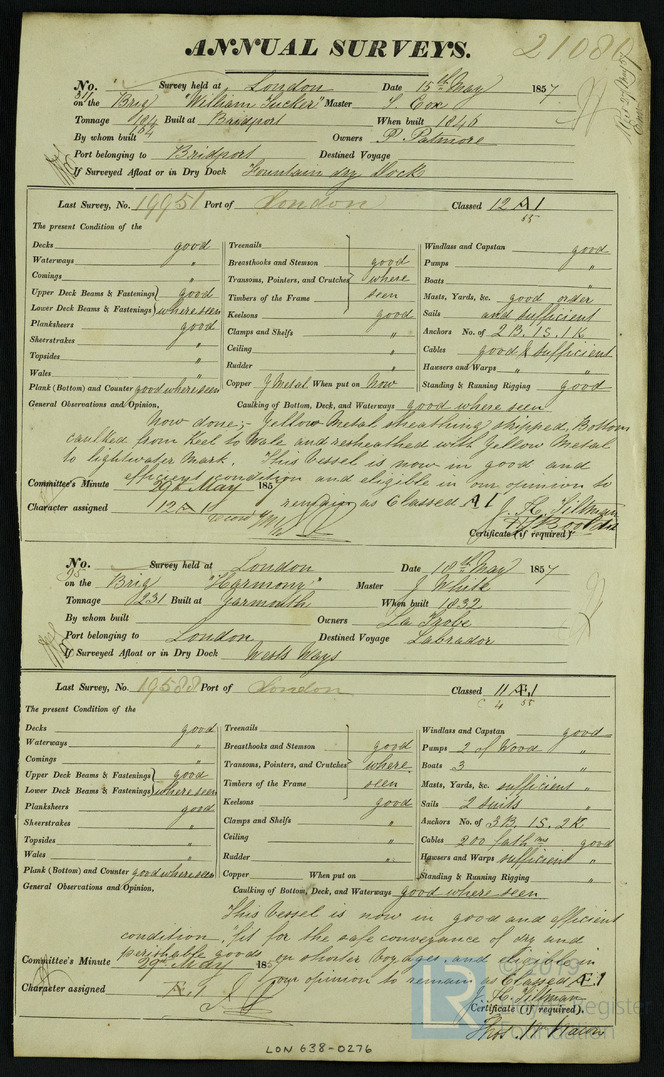 ANNUAL SURVEYS.
No. Survey held at London Date 15th May 1857
on the Brig "William Tucker" Master Cox
Tonnage 184 Built at Bridport When built 1840
By whom built Owners P Patmore
Port belonging to Bridport Destined Voyage
If Surveyed Afloat or in Dry Dock Fountain dry Dock
Last Survey, No. 19951 Port of London Classed 12 A 1
55
The present Condition of the
Decks good Treenails Windlass and Capstan good
Waterways " Breasthooks and Stemson good Pumps "
Comings " Transoms, Pointers, and Crutches where Boats "
Upper Deck Beams & Fastenings good Timbers of the Frame seen Masts, Yards, &c. good order
Lower Deck Beams & Fastenings where seen Keelsons good Sails and sufficient
Planksheers good Clamps and Shelfs " Anchors No. of 2 B. 1 S. 1 K
Sheerstrakes " Ceiling " Cables good & sufficient
Topsides " Rudder " Hawsers and Warps " "
Wales " Copper Y Metal When put on Now Standing & Running Rigging good
Plank (Bottom) and Counter good where seen
General Observations and Opinion, Caulking of Bottom, Deck, and Waterways good where seen
Now done; - Yellow Metal sheathing stripped, Bottom
caulked from Keel to Wale and resheathed with Yellow Metal
to lightwater mark. This vessel is now in good and
efficient condition and eligible in our opinion to
remain as Classed A 1
Committee's Minute 29th May 1857
Character assigned 12 A 1
J. H. Tillman
Certificate (if required)
No. Survey held at London Date 18th May 1857
on the Brig "Harmony" Master J White
Tonnage 231 Built at Yarmouth When built 1832
By whom built Owners La Trobe
Port belonging to London Destined Voyage Labrador
If Surveyed Afloat or in Dry Dock Wests Ways
Last Survey, No. 19588 Port of London Classed 11 Æ 1
4 55
The present Condition of the
Decks good Treenails Windlass and Capstan good
Waterways " Breasthooks and Stemson good Pumps 2 of Wood "
Comings " Transoms, Pointers, and Crutches where Boats 3 "
Upper Deck Beams & Fastenings good Timbers of the Frame seen Masts, Yards, &c. sufficient "
Lower Deck Beams & Fastenings where seen Keelsons good Sails 2 suits "
Planksheers good Clamps and Shelfs " Anchors No. of 3 B. 1 S. 2 K
Sheerstrakes " Ceiling " Cables 200 fathms good
Topsides " Rudder " Hawsers and Warps sufficient "
Wales " Copper When put on Standing & Running Rigging "
Plank (Bottom) and Counter good where seen
General Observations and Opinion, Caulking of Bottom, Deck, and Waterways good where seen
This vessel is now in good and efficient
condition, fit for the safe conveyance of dry and
perishable goods on shorter voyages and eligible in
our opinion to remain as Classed Æ 1
Committee's Minute 29th May 185
Character assigned Æ 1
J. H. Tillman
Certificate (if required).
LON 638-0276
© 2019
Lloyd's Register
Foundation